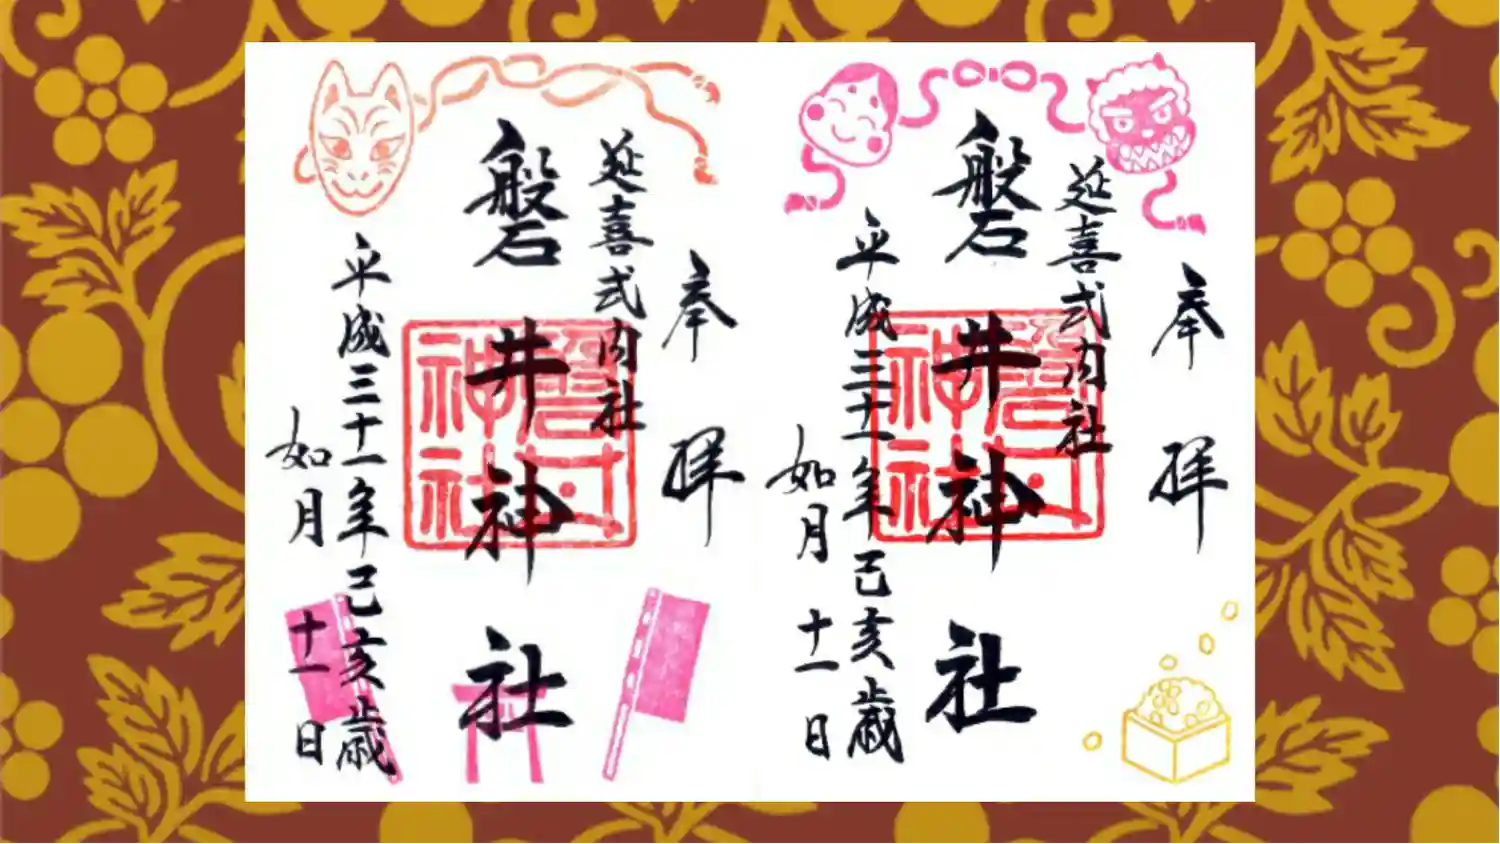 奉拝
延喜式内社
磐井神社
平成三十一年己亥歳
如月十一日
磐井神社
奉拝
延喜式内社
磐井神社
平成三十一年己亥歳
如月十一日
磐井神社